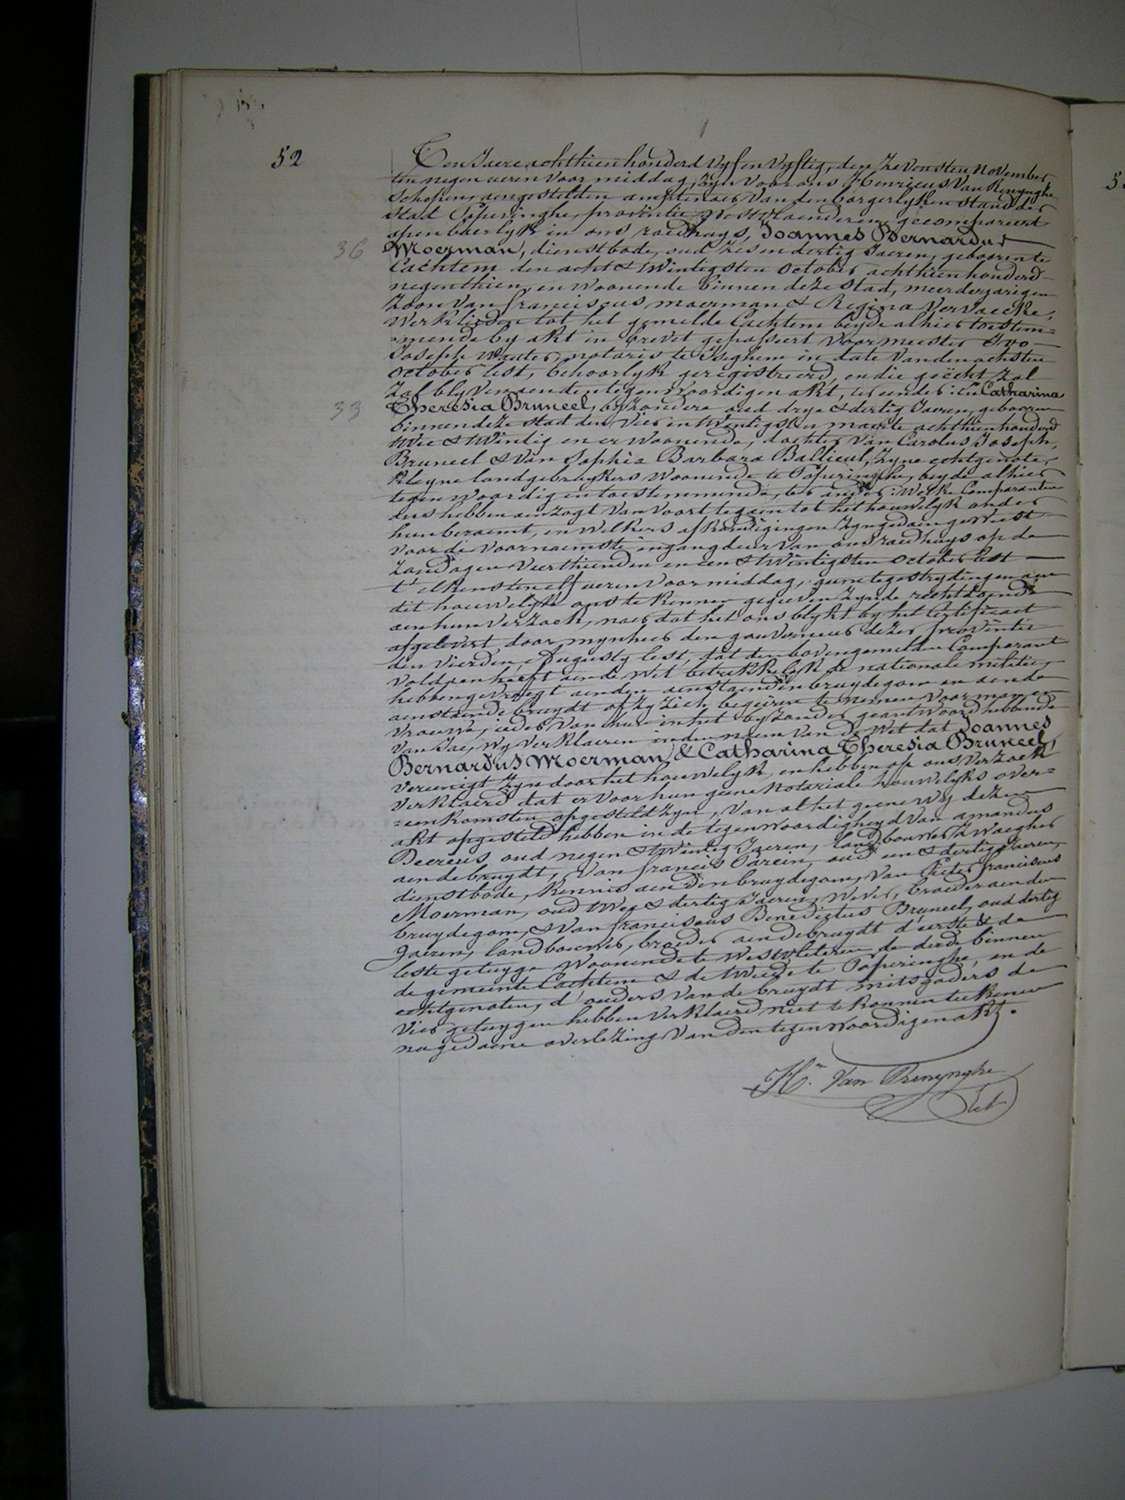 52
Ten Jaere achthien honderd vyf en vyftig, den zevensten November
ten negen ueren voormiddag, zyn voor ons Henricus Van Renynghe
Schepene, aengestelden amptenaer van den borgerlyken stand der
Stad Poperinghe, provintie Westvlaenderen, gecompareerd
openbaerlyk in ons raedhuys, Joannes Bernardus
36
Moerman, dienstbode, oud zes en dertig Jaeren, geboren te
Cachtem den acht & twintigsten October achthien honderd
negenthien, en woonende binnen deze stad, meerderjarigen
Zoon van franciscus moerman & Regina Vervaecke,
Werklieden tot het gemelde Cachtem beyde alhier toestem=
=mende by akt in brevet gepasseert voor meester Ivo
Joseph notaris te Iseghem in date van den achsten
October lest, behoorlyk geregistreerd, en die gehecht zal
zal blyven aen den tegenwoordigen akt, ter eender: En Catharina
33
Theresia Bruneel, byzondere oud drye & dertig Jaeren, geboren
binnen deze stad den vier en twintigsten maerte achthienhonderd
twee & twintig en er woonende, dochter van Carolus Joseph,
Bruneel & van Sophia Barbara Ballieul, zyne echtgenote,
kleyne landgebruykers woonende te Poperinghe, beyde alhier
tegenwoordig en toestemmende, ter andere: Welke Comparanten
ons hebben aenzogt van voort te gaen tot het houwelyk onder
hun beraemt, en welkers afkondigingen zyn gedaen geweest
voor de voornaemste ingangdeur van ons raedhuys op de
zondagen veerthienden en een & twintigsten October lest
t'elkens ten elf ueren voormiddag, geene tegenstrydingen aen
dit houwelyk ons te kennen gegeven zynde, rechtdoende
aen hun verzoek, naer dat het ons blykt by het certificaet
afgelevert door mynheer den gouverneur dezer provintie
den vierden Augusty lest, dat den bovengemelden Comparant
voldaen heeft aen de Wet betrekkelyk de nationale militie,
hebben gevraegt aen den aenstaenden bruydegom en aen de
aenstaende bruydt of zy zich begeiren te nemen voor man en
vrouwe, ieder van hun in het byzonder geantwoord hebbende
van Jae, Wy verklaeren in den naem van de Wet dat Joannes
Bernardus Moerman & Catharina Theresia Bruneel
vereenigt zyn door het houwelyk, en hebben op ons verzoek
verklaerd dat er voor hun geene Notariale houwelyks over=
=eenkomsten opgesteld zyn, Van al het geene wy deze
akt opgesteld hebben in de tegenwoordigheyd van amandus
Decreus oud negen & twintig Jaeren, landbouwer, Zwaegher
aen de bruydt, Van francis Parein, oud een & dertig Jaeren,
dienstbode, kennis aen den bruydegom, Van Pieter franciscus
Moerman, oud twee & dertig Jaeren, Wever, broeder aen den
bruydegom, & Van franciscus Benedictus Bruneel, oud dertig
Jaeren, landbouwer, broeder aen de bruydt d'eerste & de
leste getuyge woonende te Westvleteren, de derde binnen
de gemeente Cachtem & de tweede te Poperinghe, en de
echtgenoten, d'ouders van de bruydt mitsgaders de
vier getuygen hebben verklaerd niet te konnen teekenen
na gedaene overlezing van den tegenwoordigen akt.
Hr. Van Renynghe